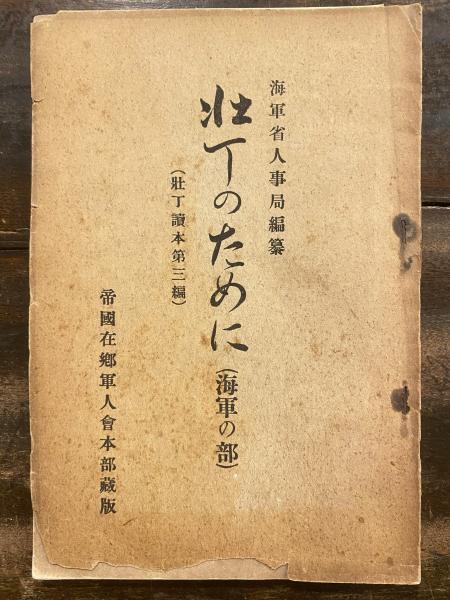 海軍省人事局編纂
壯丁のために(海軍の部)
(壯丁讀本第三編)
帝國在鄕軍人會本部藏版